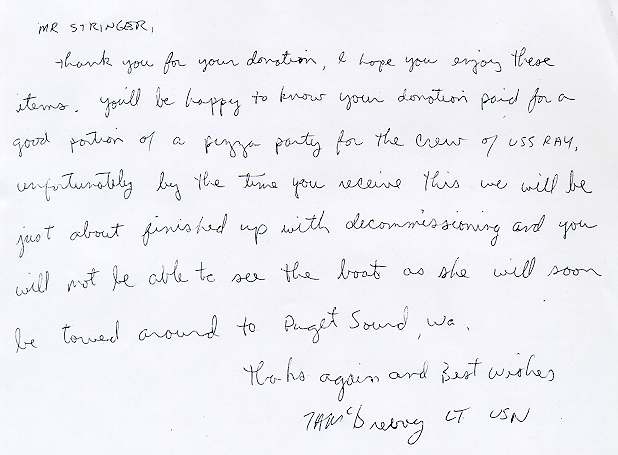 MR STRINGER,
Thank you for your donation, I hope you enjoy these
items. you'll be happy to know your donation paid for a
good portion of a pizza party for the crew of USS RAY,
unfortunately by the time you receive this we will be
just about finished up with decommissioning and you
will not be able to see the boat as she will soon
be towed around to Puget Sound, Wa.
Thanks again and Best wishes
LT USN